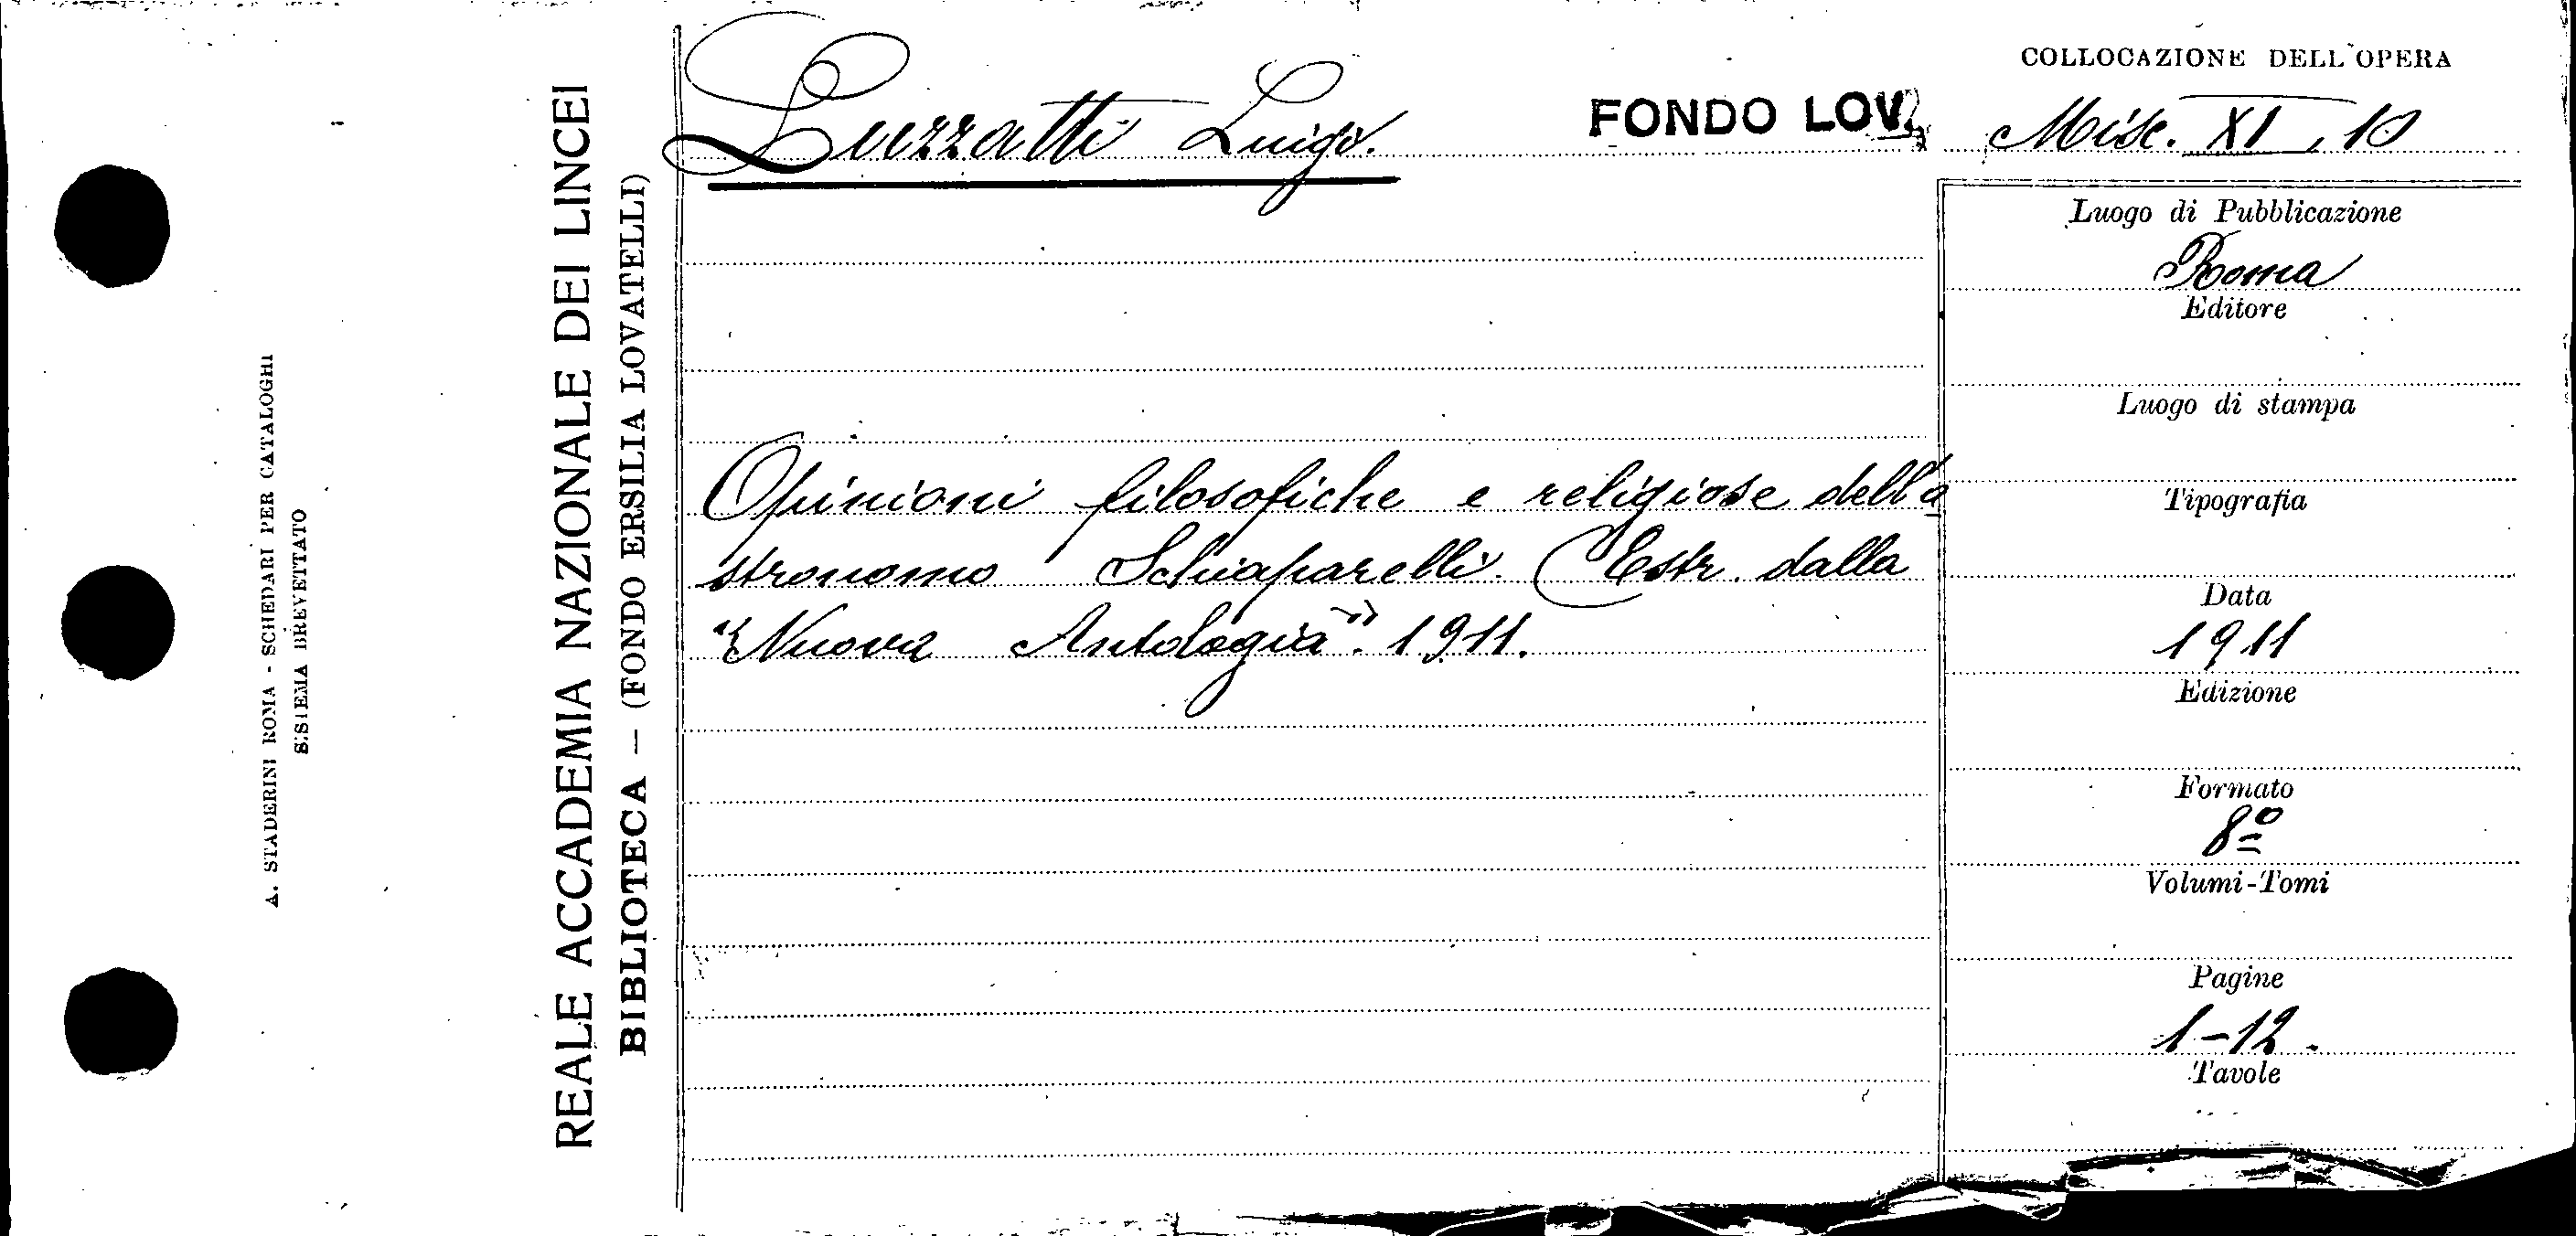 A. STADERINI ROMA - SCHEDARI PER CATALOGHI
SISTEMA BREVETTATO
REALE ACCADEMIA NAZIONALE DEI LINCEI
BIBLIOTECA — (FONDO ERSILIA LOVATELLI)
Luzzatti Luigi.
FONDO LOV.
COLLOCAZIONE DELL'OPERA
Misc. XI, 10
Opinioni filosofiche e religiose dell'a
stronomo Schiaparelli. (Estr. dalla
"Nuova Antologia". 1911.
Luogo di Pubblicazione
Roma
Editore
Luogo di stampa
Tipografia
Data
1911
Edizione
Formato
8º
Volumi-Tomi
Pagine
1-12.
Tavole